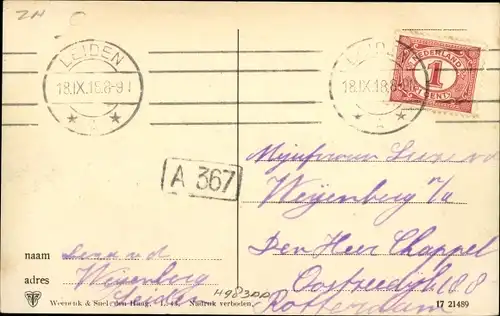 ZN
LEIDEN
18.IX.18.8-9V
LEIDEN
18.IX.18.8-
NEDERLAND
1
CENT
A 367
Mejufvrouw
Weijenberg p/a
Den Heer Chappel
Oostzeedijk 188
Rotterdam
naam
adres Weijenberg
Leiden
Weenenk & Snel, den Haag, Nadruk verboden.
17 21489